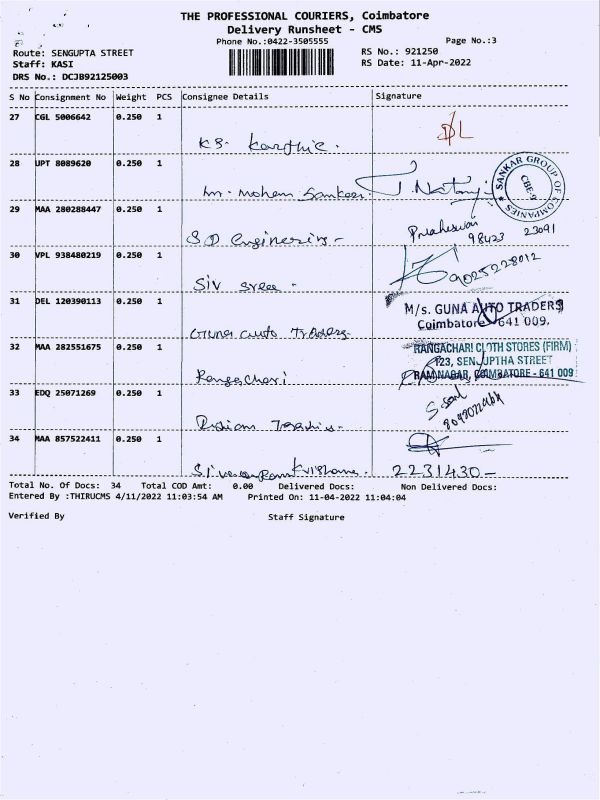 THE PROFESSIONAL COURIERS, Coimbatore
Delivery Runsheet - CMS
Phone No.:0422-3505555
Page No.:3
Route: SENGUPTA STREET
RS No.: 921250
Staff: KASI
RS Date: 11-Apr-2022
DRS No.: DCJB92125003
S No Consignment No Weight PCS Consignee Details Signature
27 CGL 5006642 0.250 1
KS. Karthic.
28 UPT 8089620 0.250 1
Mr. Mohan Sankar
SANKAR GROUP OF COMPANIES
CBE-9
29 MAA 280288447 0.250 1
S D Engineering -
98423 23091
30 VPL 938480219 0.250 1
Siv sree -
9025228012
31 DEL 120390113 0.250 1
Guna auto Traders
M/s. GUNA AUTO TRADERS
Coimbatore - 641 009.
32 MAA 282551675 0.250 1
Rangachari
RANGACHARI CLOTH STORES (FIRM)
123, SENGUPTHA STREET
RAM NAGAR, COIMBATORE - 641 009
33 EDQ 25071269 0.250 1
34 MAA 857522411 0.250 1
Krishana.
2231430-
Total No. Of Docs: 34 Total COD Amt: 0.00 Delivered Docs: Non Delivered Docs:
Entered By :THIRUCMS 4/11/2022 11:03:54 AM Printed On: 11-04-2022 11:04:04
Verified By Staff Signature